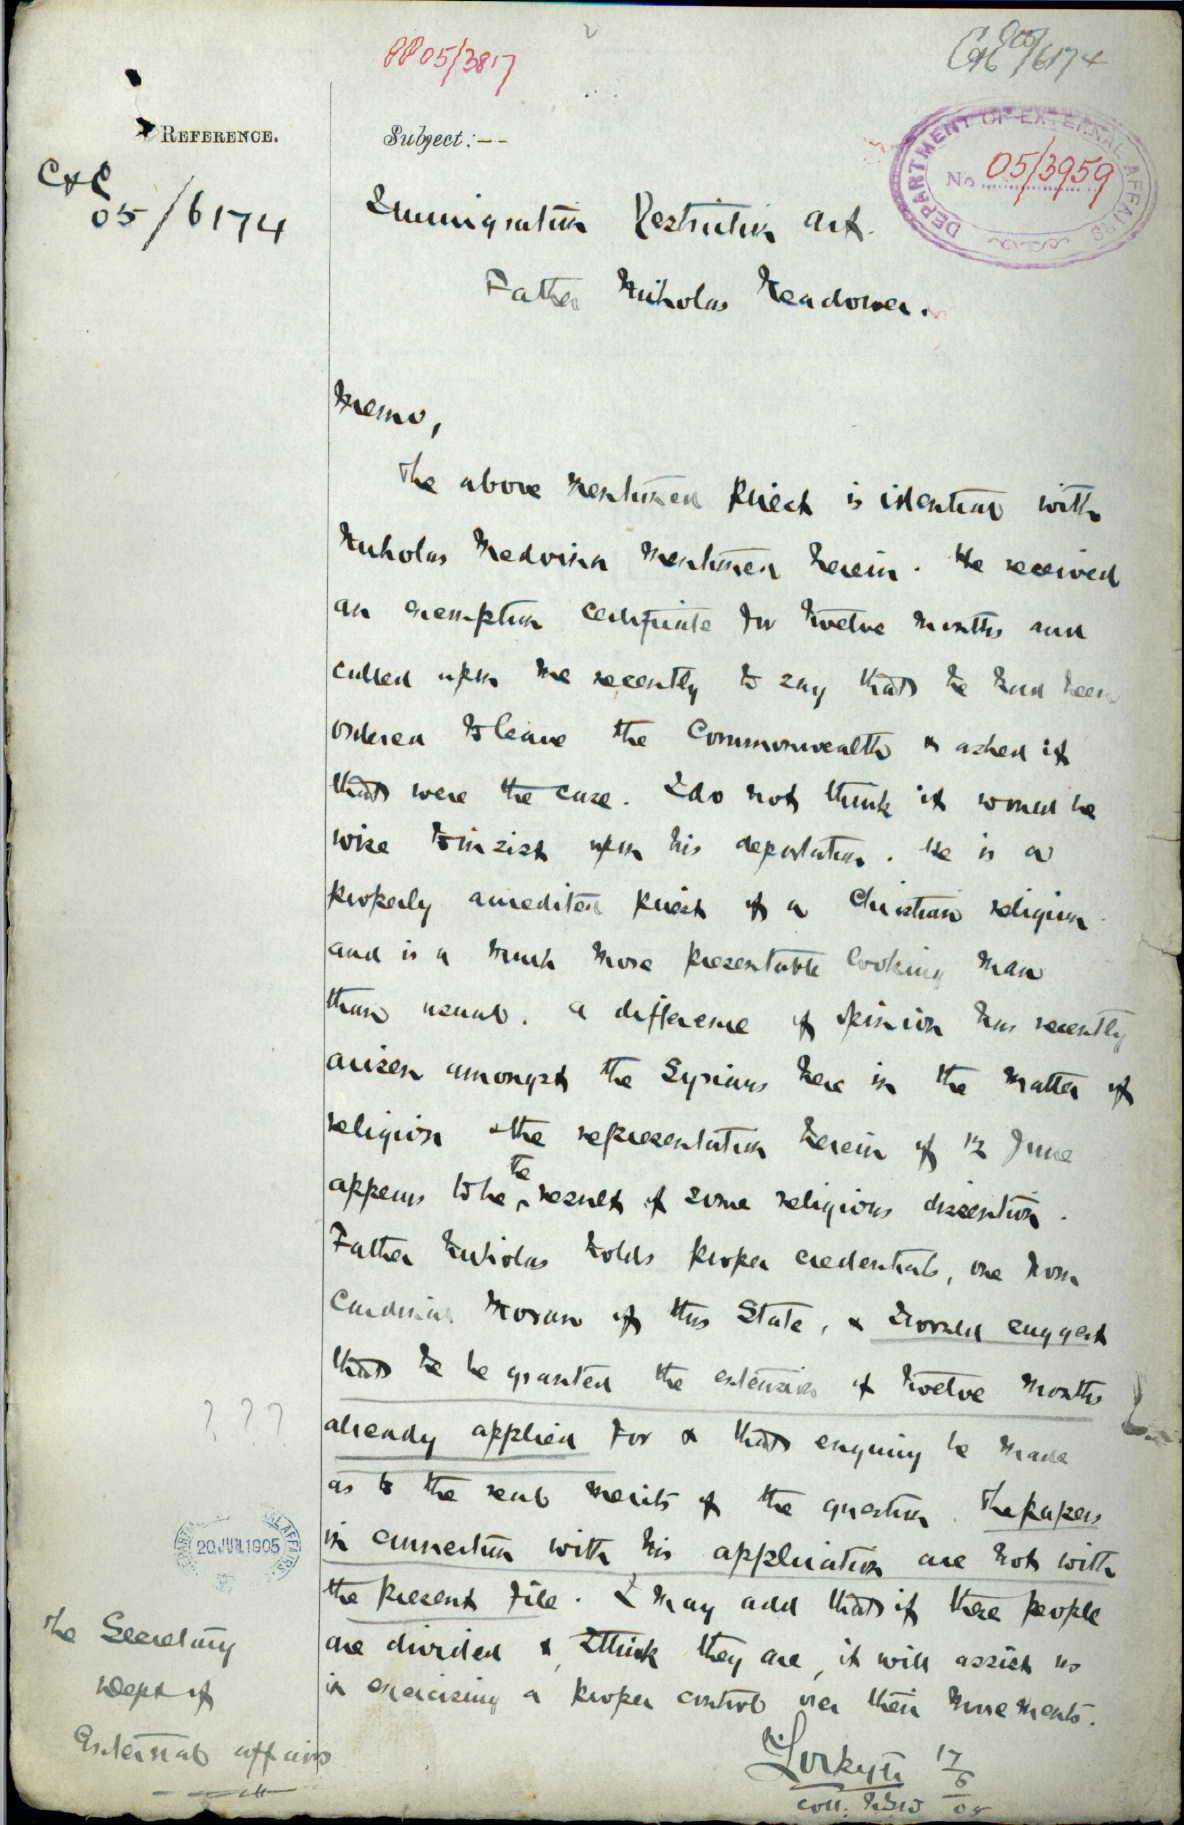 PP05/3817
C&C 05/6174
REFERENCE.
Subject:--
DEPARTMENT OF EXTERNAL AFFAIRS
No. 05/3959
C&C
05/6174
Immigration Restriction Act.
Father Nicholas Meadower.
Memo,
The above mentioned Priest is identical with
Nicholas Medvina mentioned herein. He received
an exemption certificate for twelve months and
called upon me recently to say that he had been
ordered to leave the Commonwealth & asked if
that were the case. I do not think it would be
wise to insist upon his deportation. He is a
properly accredited priest of a Christian religion
and is a much more presentable looking man
than usual. A difference of opinion has recently
arisen amongst the Syrians here in the matter of
religion & the representation herein of 12 June
appears to be the result of some religious dissention.
Father Nicholas holds proper credentials, one from
Cardinal Moran of this State, & I would suggest
that he be granted the extension of twelve months
already applied for & that enquiry be made
as to the real merits of the question. The papers
in connection with his application are not with
the present file. I may add that if these people
are divided &, I think they are, it will assist us
in exercising a proper control over their movements.
? ? ?
20 JUN 1905
The Secretary
Dept of
External Affairs
N. Lockyer 17/6/05
Coll: NSW